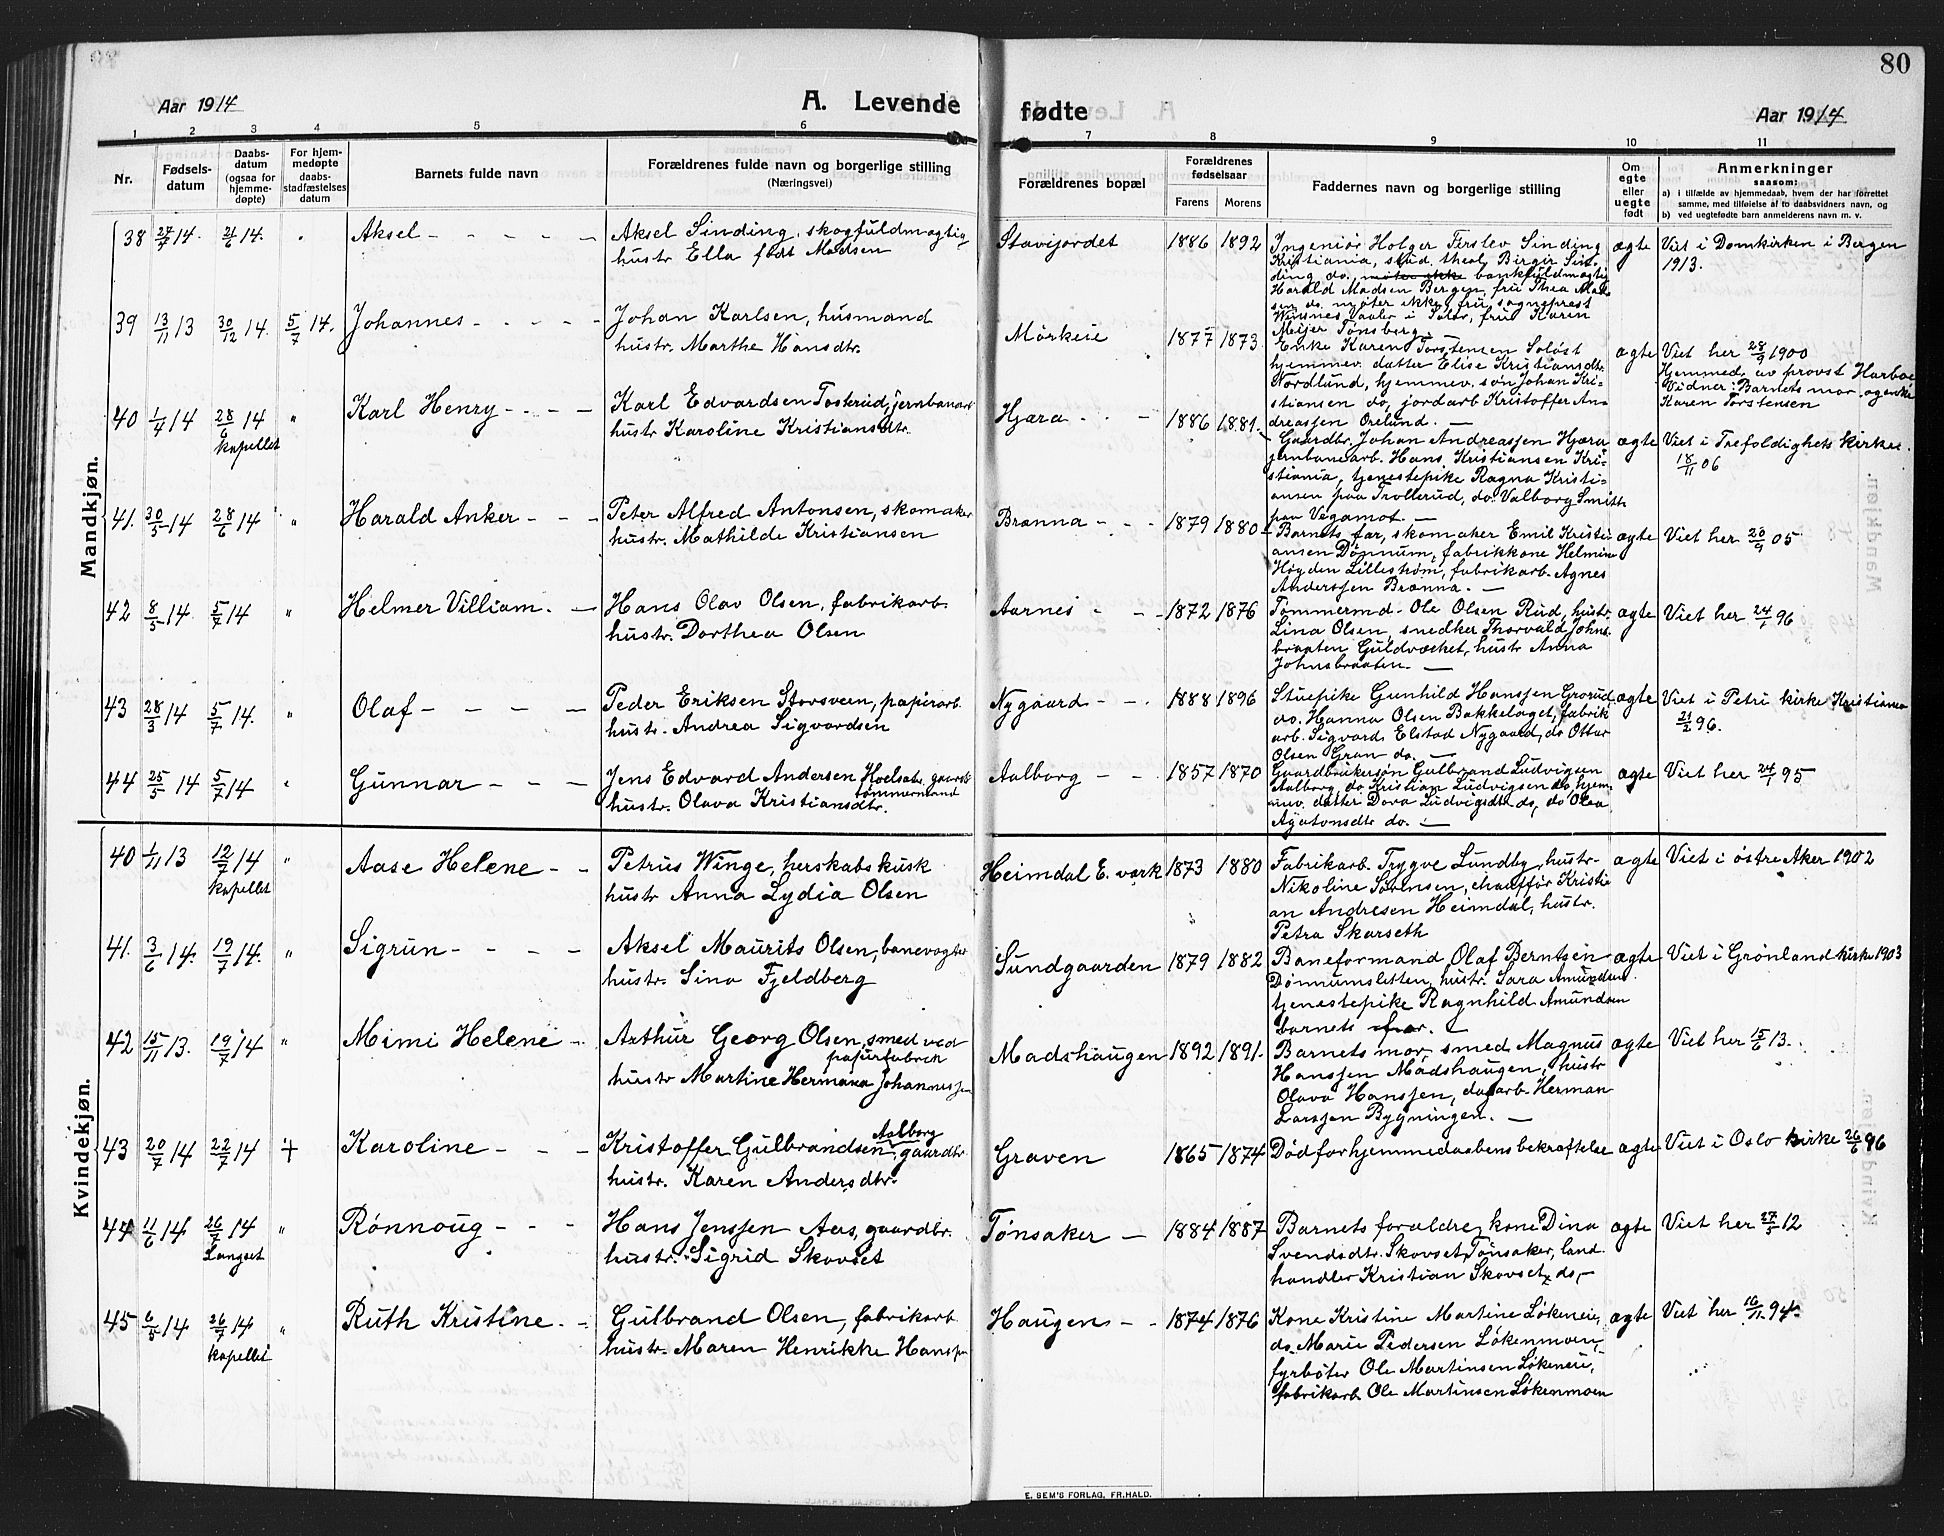 80
Aar 1914
A. Levende
fødte
Aar 1914
1 2 3 4 5 6 7 8 9 10 11
Nr.
Fødsels-
datum
Daabs-
datum
(ogsaa for
hjemme-
døpte)
For hjem-
medøpte
daabs-
stadfæstelses
datum
Barnets fulde navn
Forældrenes fulde navn og borgerlige stilling
(Næringsvei)
Forældrenes bopæl
Forældrenes
fødselsaar
Farens Morens
Faddernes navn og borgerlige stilling
Om
egte
eller
uegte
født
Anmerkninger
saasom:
a) i tilfælde av hjemmedaab, hvem der har forrettet
samme, med tilføielse af to daabsvidners navn, og
b) ved uegtefødte barn anmelderens navn m. v.
Mandkjøn.
38 27/7 14. 21/6 14. Aksel - - - - - Aksel Sinding, skogfuldmægtig
hustr Ella født Madsen
Stavijordet 1886 1892
Ingeniør Holger Ferslev Sinding
Kristiania, stud. theol. Birgir Sin-
ding do, møter ikke bankfuldmægtig
Harald Madsen Bergen, fru Thea Mad-
sen do møter ikke, fru sogneprest
Winsnes Vaaler i Solør, frue Karen
Meijer Tønsberg —
ægte Viet i Domkirken i Bergen
1913.
39 13/11 13 30/12 14. 5/7 14. Johannes - - - - - Johan Karlsen, husmand
hustr. Marthe Hansdtr.
Mørkeie 1877 1873
Enke Karen Torstensen Soløst
hjemmev. datter Elise Kristiansdtr.
Nordlund, hjemmev. søn Johan Kri-
stiansen do, jordarb Kristoffer An-
dreassen Ørelund. —
ægte Viet her 28/9 1900
Hjemmed. av provst Harboe
Vidner: Barnets mor og enke
Karen Torstensen
40 1/4 14 28/6 14 " Karl Henry - - - - Karl Edvardsen Tosterud, jernbanarb
kapellet
hustr Karoline Kristiansdtr.
Hjæra - - - 1886 1881.
Gaardbr. Johan Andreassen Hjæra
jernbanearb. Hans Kristiansen Kri-
stiania, tjenestepike Ragna Kristi-
ansen paa Trollerud, do. Valborg Smith
paa Vegamot. —
ægte Viet i Trefoldighets kirke.
18/11 06
41. 30/5 14 28/6 14 " Harald Anker - - - Peter Alfred Antonsen, skomaker
hustr. Mathilde Kristiansen
Brænna - - - 1879 1880
Barnets far, skomaker Emil Kristi-
ansen Dønnum, fabrikkone Helmine
Høyden Lillestrøm, fabrikarb. Agnes
Anderssen Brænna. —
ægte Viet her 20/9 05
42 8/5 14 5/7 14 " Helmer Villiam. - Hans Olav Olsen, fabrikarb.
hustr. Dorthea Olsen
Aarnes - - - 1872 1876
Tømmermd. Ole Olsen Rud, hustr.
Lina Olsen, snedker Thorvald Johns-
braaten Guldværket, hustr Anna
Johnsbraaten. —
ægte Viet her 24/1 96
43 28/3 14 5/7 14. " Olaf - - - - Peder Eriksen Storsveen, papirarb.
hustr. Andrea Sigvardsen
Nygaard - - . 1888 1896
Stuepike Gunhild Hanssen Grorud
do. Hanna Olsen Bakkelaget, fabrik
arb. Sigvard Elstad Nygaard, do Ottar
Olsen Gran do. —
ægte Viet i Petri kirke Kristiania
21/2 96.
44 25/5 14 5/7 14 " Gunnar - - - Jens Edvard Andersen
tømmermand
hustr. Olava Kristiansdtr.
Aalborg - - 1857 1870
Gaardbrukersøn Gulbrand Ludvigsen
Aalborg, do Kristian Ludvigsen do, hjem-
mev. datter Dora Ludvigsdtr do, do Olea
do. —
ægte Viet her 24/1 95
Kvindekjøn.
40 1/11 13 12/7 14 " Aase Helene - - Petrus Winge, herskabskusk
kapellet
hustr Anna Lydia Olsen
Heimdal E. værk 1873 1880
Fabrikarb. Trygve Lundby, hustr.
Nikoline Sørensen, chauffør Kristi
an Andresen Heimdal, hustr.
Petra Skarseth
ægte Viet i østre Aker 1902
41. 3/6 14. 19/7 14. " Sigrun - - - - Aksel Maurits Olsen, banevogter
hustr. Sina Fjeldberg
Sundgaarden 1879 1882
Baneformand Olaf Berntsen
Dønnumsletten, hustr. Sara Amundsen
tjenestepike Ragnhild Amundsen
barnets far. —
ægte Viet i Grønland kirke 1903
42 15/11 13. 19/7 14 " Mimi Helene - Arthur Georg Olsen, smed ved
papirfabrik
hustr Martine Hermana Johannessen
Madshaugen 1892 1891.
Barnets mor, smed Magnus
Hanssen Madshaugen, hustr
Olava Hanssen, dagarb. Herman
Larssen Bygningen. —
ægte Viet her 15/6 13.
43 20/7 14 22/7 14 + Karoline - - - Kristoffer Gulbrandsen Aalborg, gaardbr.
hustr. Karen Andersdtr.
Graven 1865 1874 Død før hjemmedaabens bekræftelse ægte Viet i Oslo kirke 26/6 96
44 11/6 14 26/7 14 " Rønnoug - - - Hans Jenssen Aas, gaardbr.
Langset
hustr. Sigrid Skovset
Tønsaker - 1884 1887
Barnets forældre, kone Dina
Svendsdtr. Skovset Tønsaker, land-
handler Kristian Skovset do, -
ægte Viet her 27/5 12
45 6/5 14 26/7 14 " Ruth Kristine - - Gulbrand Olsen, fabrikarb.
kapellet
hustr. Maren Henrikke Hanssen
Haugen - - 1874 1876
Kone Kristine Martine Løkeneie,
do, Marie Pedersen Løkenmoen,
fyrbøter Ole Martinsen Løkeneie,
fabrikarb Ole Martinsen Løkenmoen
ægte Viet her 16/11 94.
E. SEM'S FORLAG, FR.HALD.